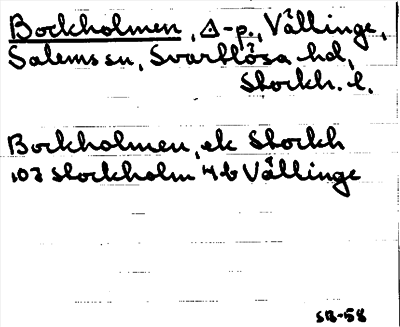 Bockholmen, Δ-p., Vällinge,
Salems sn, Svartlösa hd,
Stockh. l.
Bockholmen, ek Stockh
103 Stockholm 4b Vällinge
SB-58